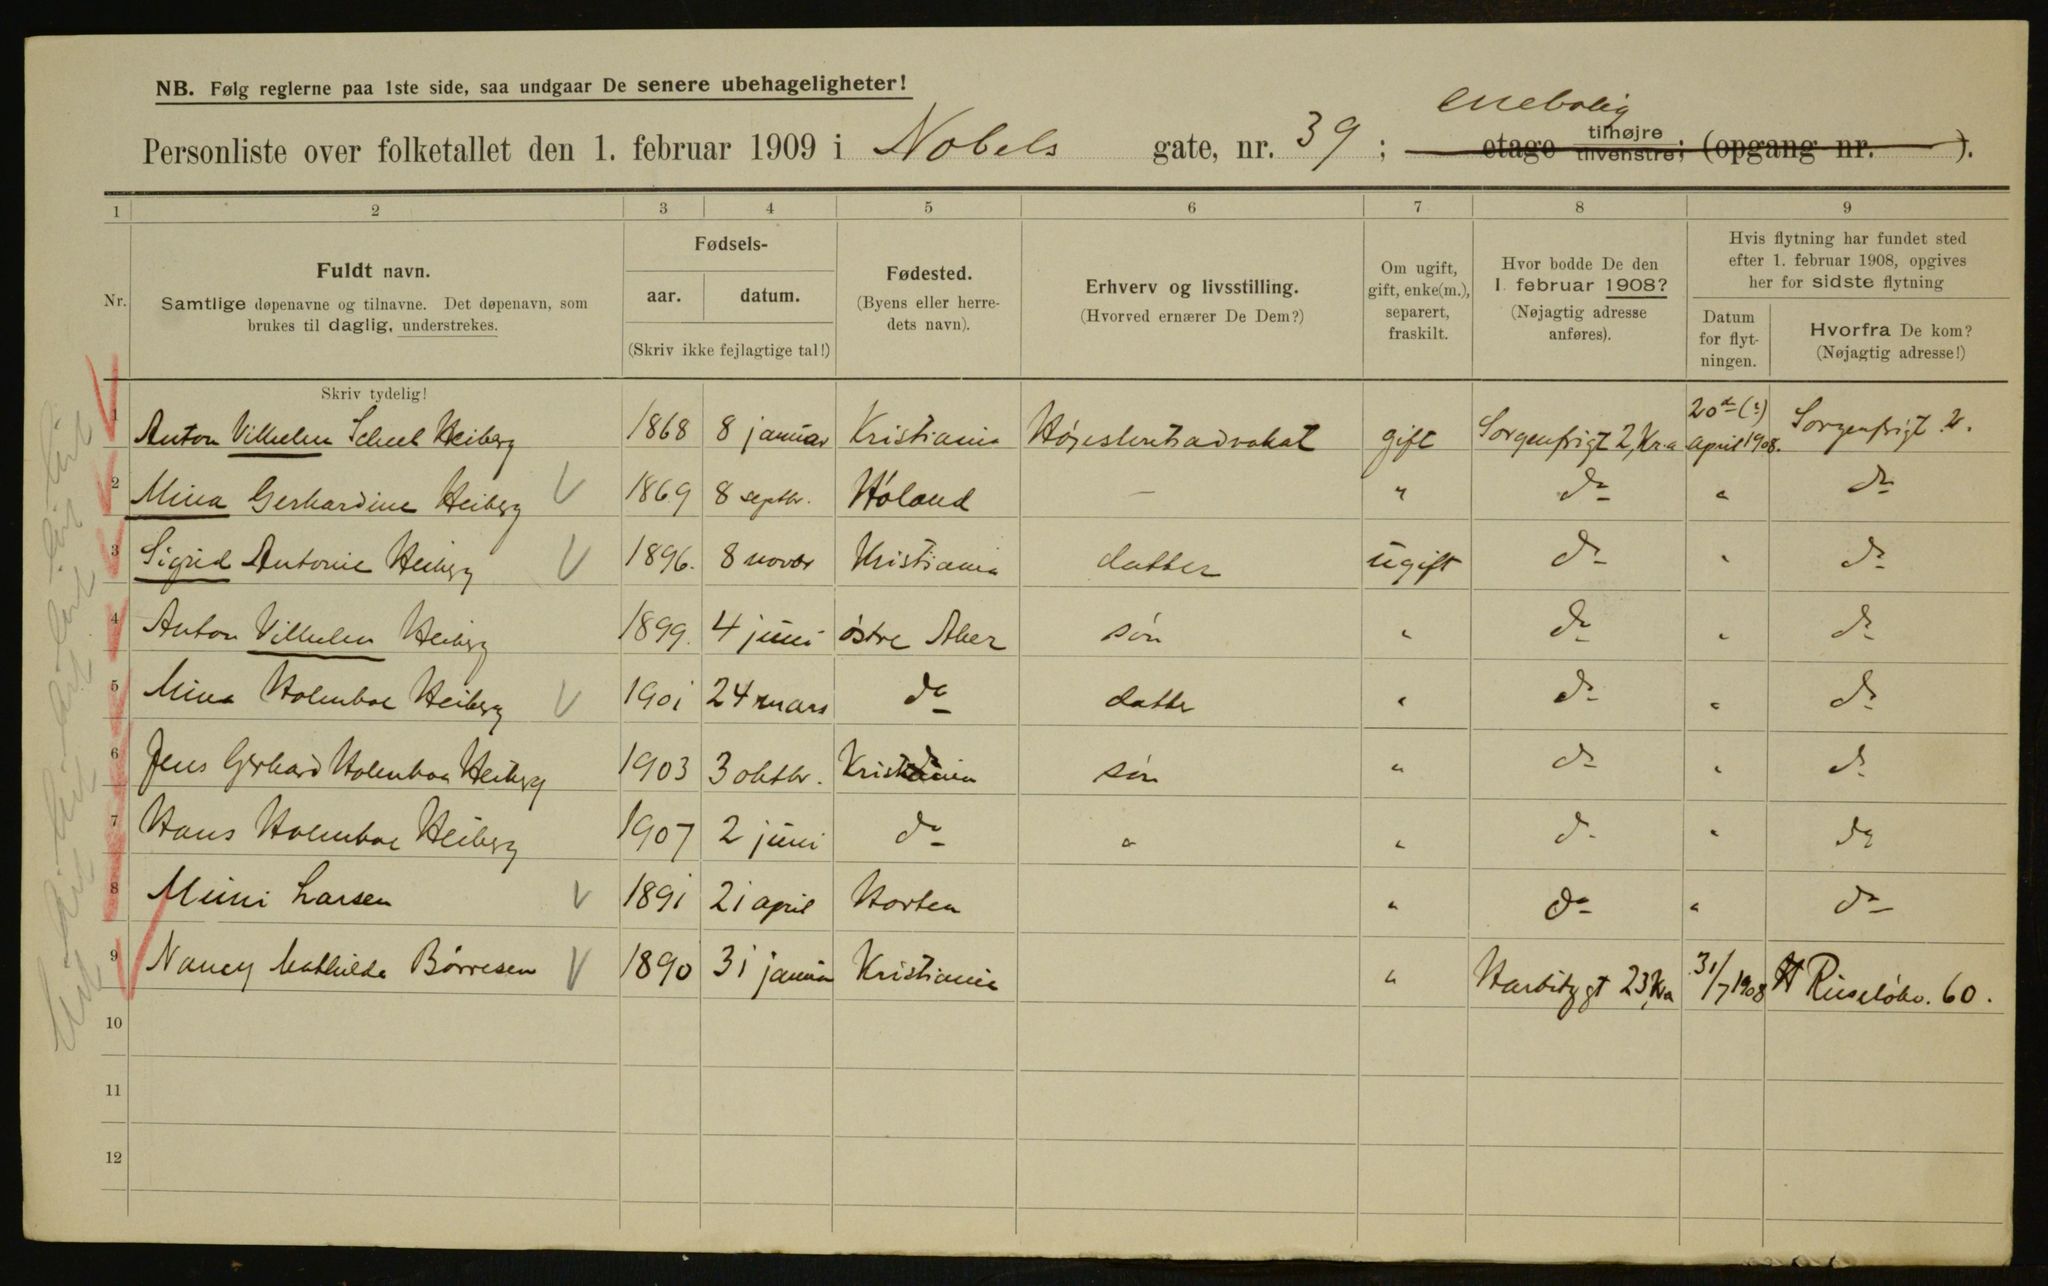 NB. Følg reglerne paa 1ste side, saa undgaar De senere ubehageligheter!
enebolig
Personliste over folketallet den 1. februar 1909 i Nobels gate, nr. 39 ; etage tilhøjre tilvenstre; (opgang nr. ).
1 2 3 4 5 6 7 8 9
Nr.
Fuldt navn.
Samtlige døpenavne og tilnavne. Det døpenavn, som
brukes til daglig, understrekes.
Fødsels-
aar. datum.
(Skriv ikke fejlagtige tal!)
Fødested.
(Byens eller herre-
dets navn).
Erhverv og livsstilling.
(Hvorved ernærer De Dem?)
Om ugift,
gift, enke(m.),
separert,
fraskilt.
Hvor bodde De den
1. februar 1908?
(Nøjagtig adresse
anføres).
Hvis flytning har fundet sted
efter 1. februar 1908, opgives
her for sidste flytning
Datum
for flyt-
ningen.
Hvorfra De kom?
(Nøjagtig adresse!)
Skriv tydelig!
1 Anton Vilhelm Scheel Heiberg 1868 8 januar Kristiania Høiesteretsadvokat gift Sorgenfrigt 2, Kra 20de (?) april 1908. Sorgenfrigt. 2.
2 Mina Gerhardine Heiberg 1869 8 septbr. Høland — " do " do
3 Sigrid Antonie Heiberg 1896. 8 novbr Kristiania datter ugift do " do
4 Anton Vilhelm Heiberg 1899. 4 juni østre Aker søn " do " do
5 Mina Holmboe Heiberg 1901 24 mars do datter " do " do
6 Jens Gerhard Holmboe Heiberg 1903 3 oktbr. Kristiania søn " do " do
7 Hans Holmboe Heiberg 1907 2 juni do " " do " do
8 Mimi Larsen 1891 21 april Horten " do " do
9 Nancy Mathilde Børresen 1890 31 januar Kristiania " Harbitzgt 23, Kra 31/7 1908 Ruseløkv. 60.
10
11
12